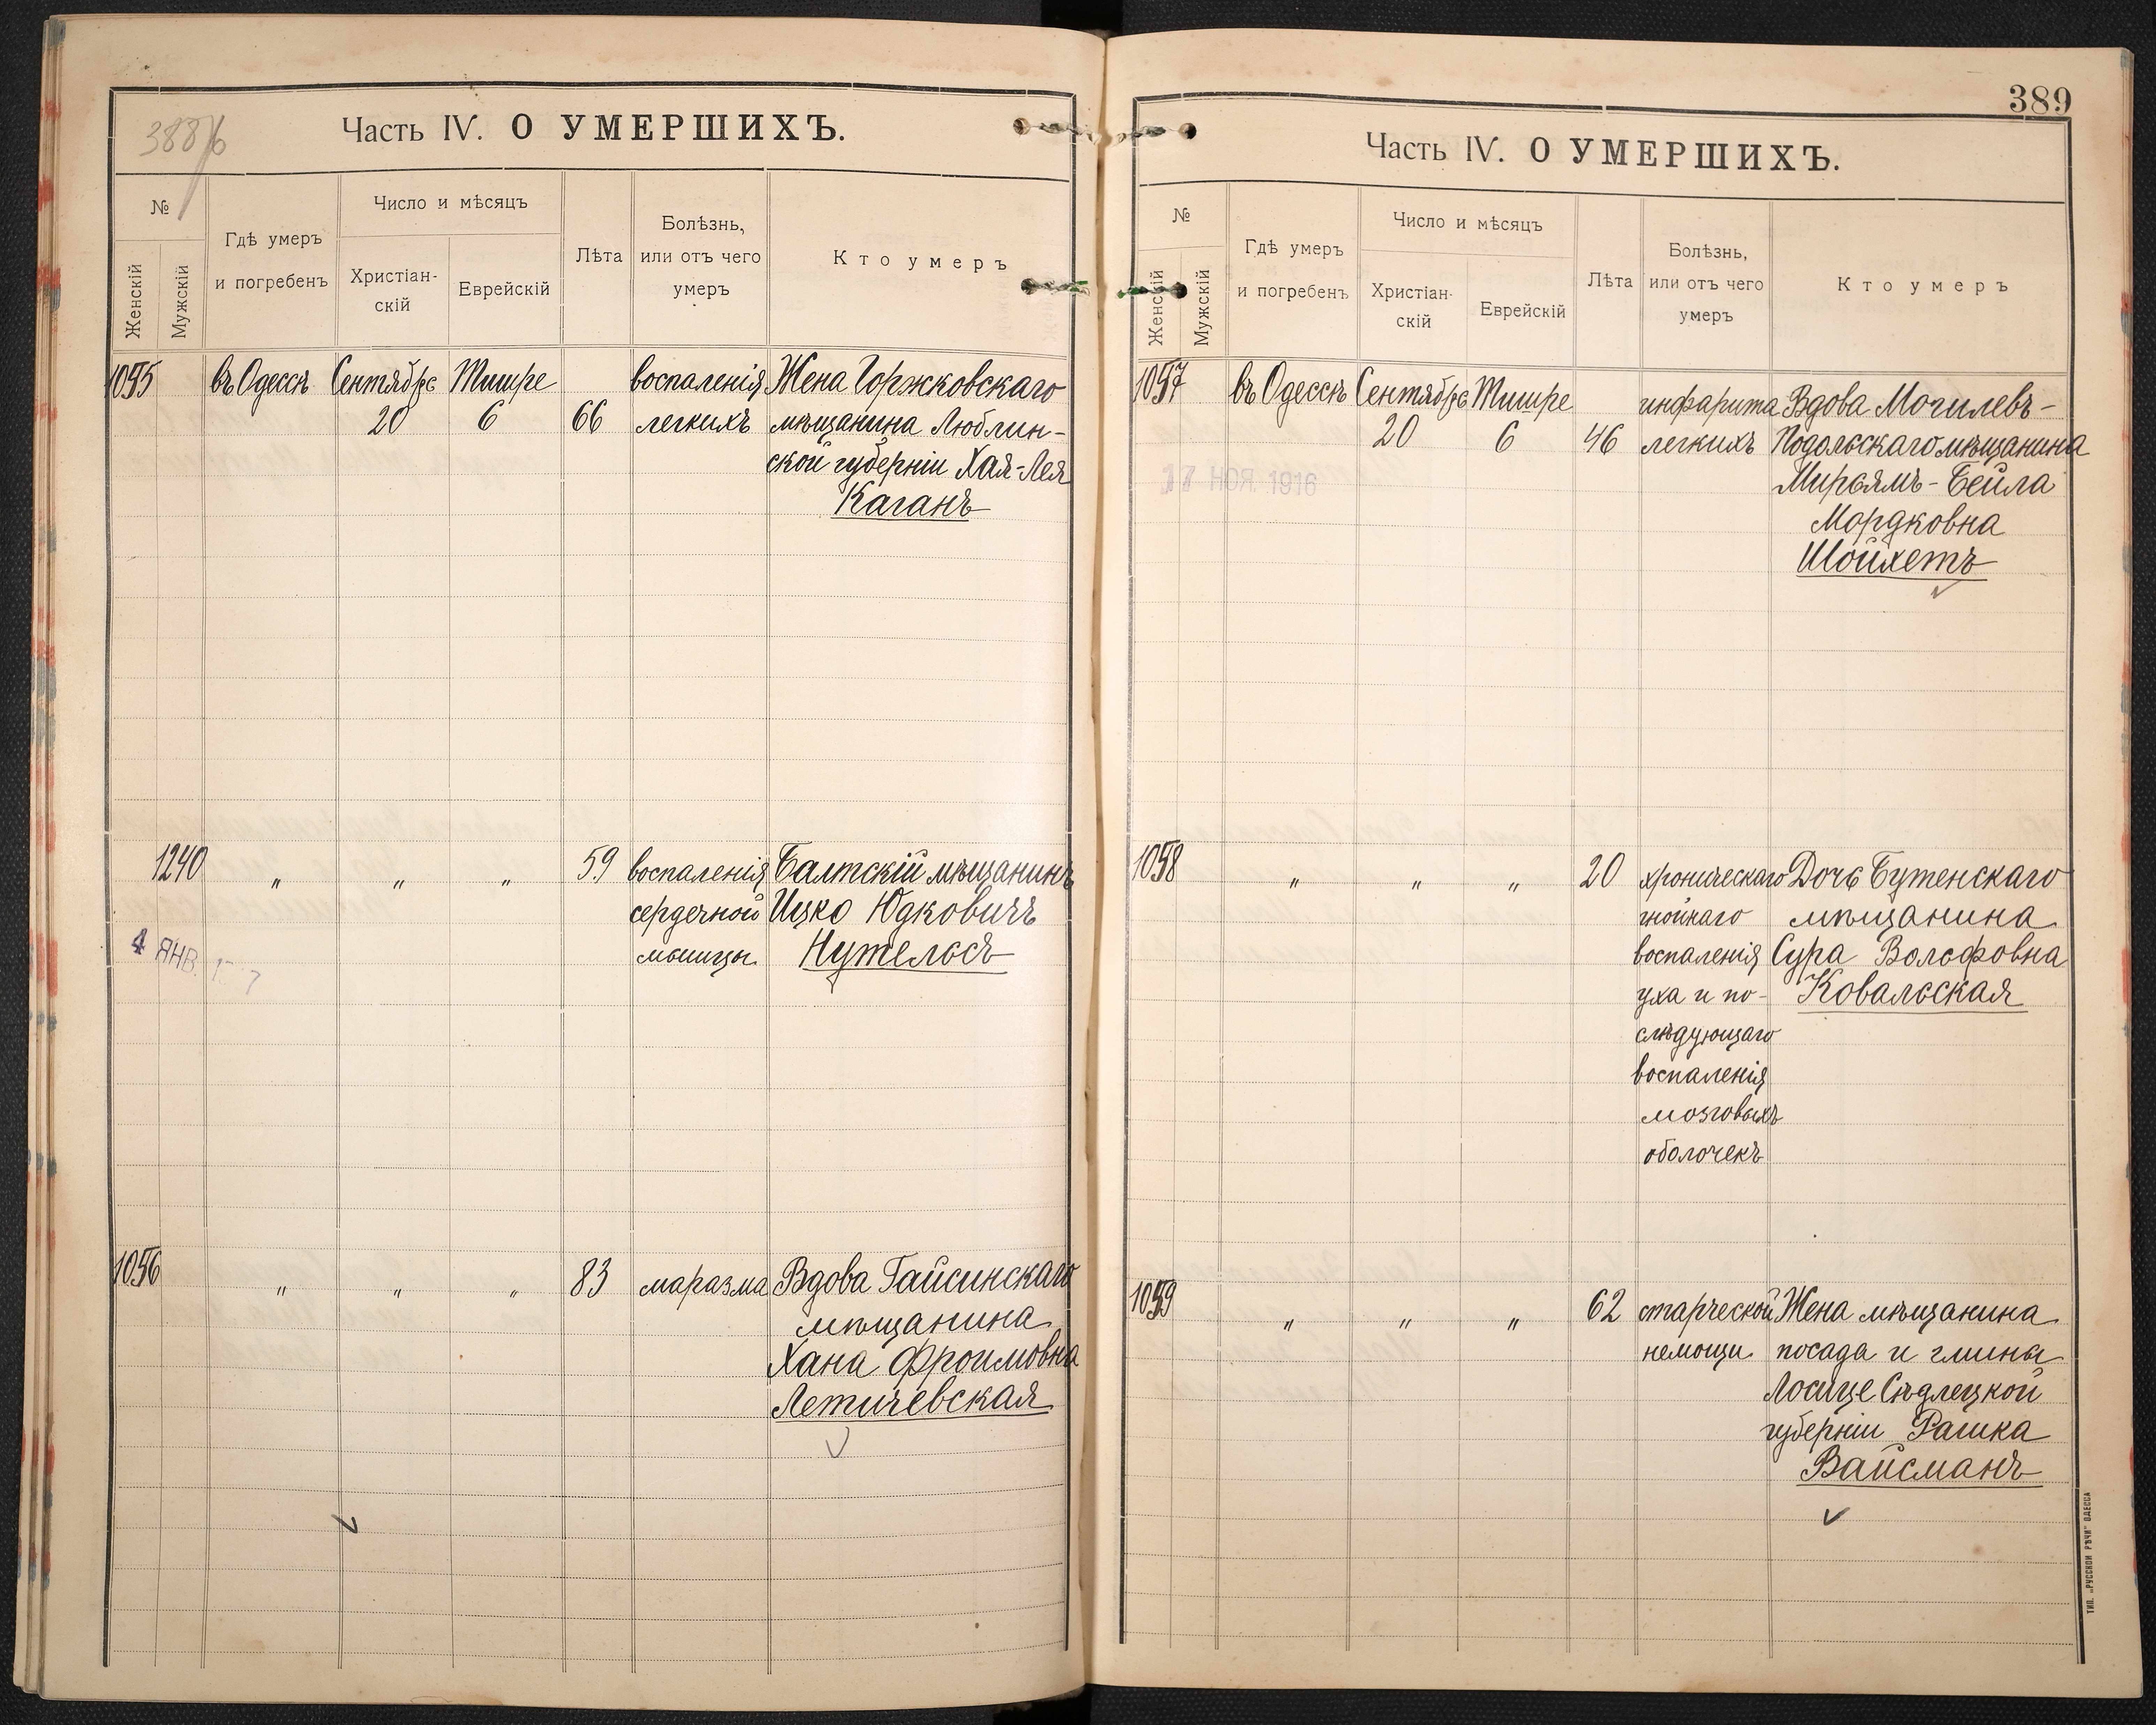 388/б
Часть IV. О УМЕРШИХЪ.
№
Женскій
Мужскій
Гдѣ умеръ
и погребенъ
Число и мѣсяцъ
Христіан-
скій
Еврейскій
Лѣта
Болѣзнь,
или отъ чего
умеръ
Кто умеръ
1055 въ Одессѣ Сентябрь Тишре воспаленія Жена Горжковскаго
20 6 66 легкихъ мѣщанина Люблин-
ской губерніи Хая-Лея
Каганъ
1240 " " " 59 воспаленія Балтскій мѣщанинъ
сердечной Ицко Юдковичъ
мышцы Нутельсъ
4 ЯНВ.
1056 " " " 83 маразма Вдова Гайсинскаго
мѣщанина
Хана Фроимовна
Летичевская
389
Часть IV. О УМЕРШИХЪ.
№
Женскій
Мужскій
Гдѣ умеръ
и погребенъ
Число и мѣсяцъ
Христіан-
скій
Еврейскій
Лѣта
Болѣзнь,
или отъ чего
умеръ
Кто умеръ
1057 въ Одессѣ Сентябрь Тишре инфаркта Вдова Могилевъ-
20 6 46 легкихъ Подольскаго мѣщанина
17 НОЯ 1916
Мирьямъ-Бейла
Мордковна
Шойхетъ
1058 " " " 20 хроническаго Дочь Бутенскаго
гнойнаго мѣщанина
воспаленія Сура Вольфовна
уха и по- Ковальская
слѣдующаго
воспаленія
мозговыхъ
оболочекъ
1059 " " " 62 старческой Жена мѣщанина
немощи посада и гмины
Лосице Сѣдлецкой
губерніи Рашка
Вайсманъ
ТИП. „РУССКОЙ РѢЧИ" ОДЕССА